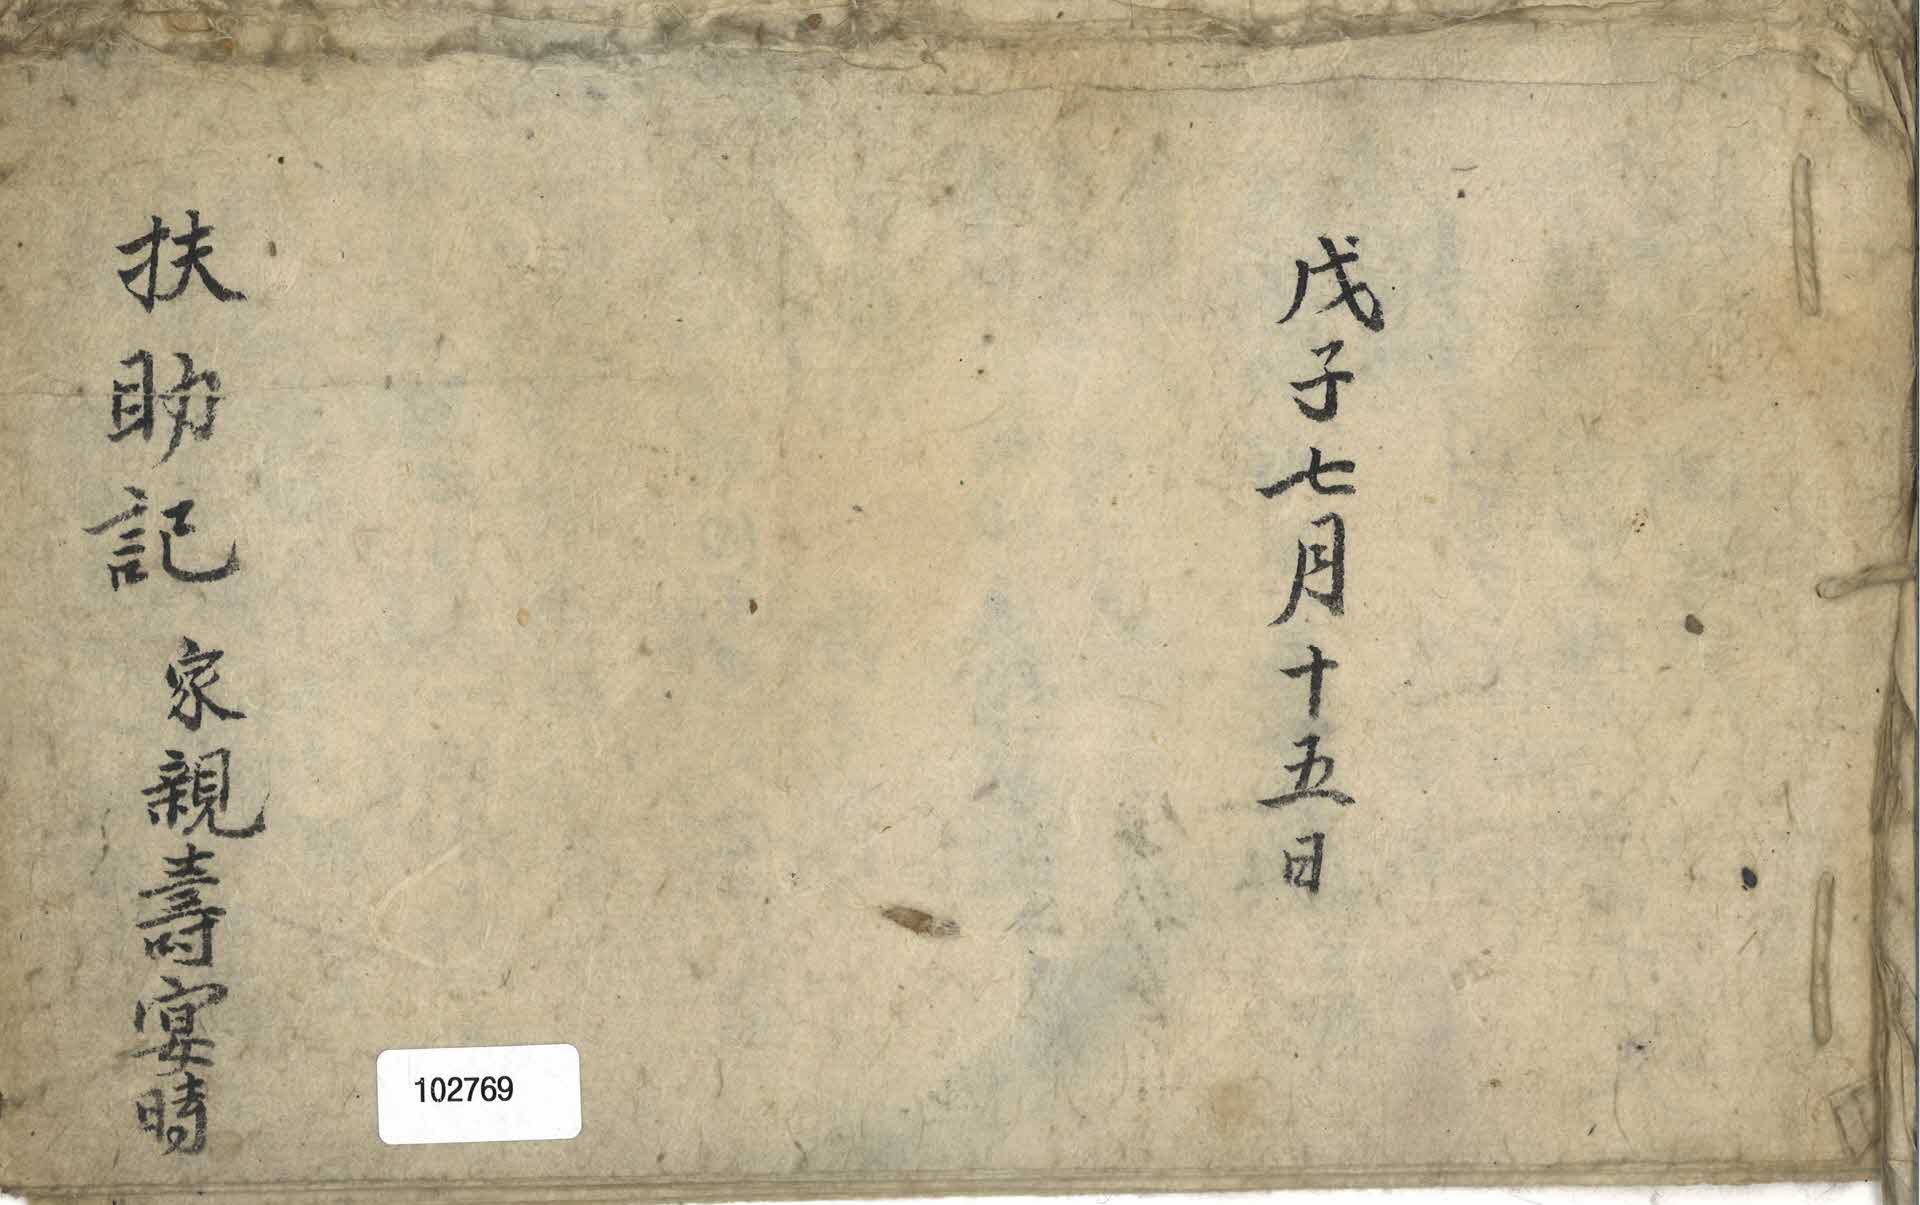 戊子七月十五日
扶助記 家親壽宴時
102769